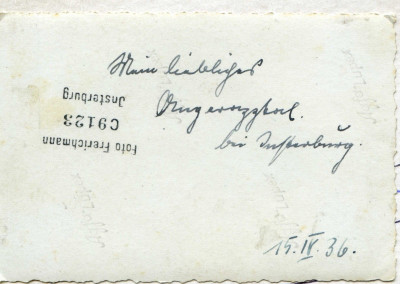 Mein liebliches
Angerapptal.
bei Insterburg.
15. IV. 36.
Foto Frerichmann
C9123
Insterburg